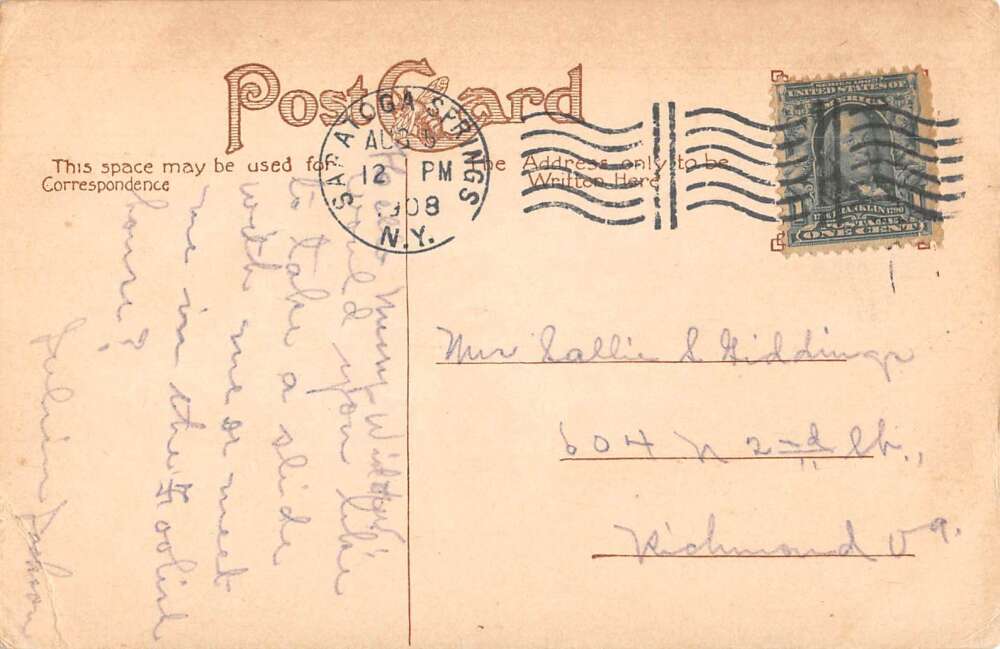 Post Card
This space may be used for
Correspondence
The Address only to be
Written Here
SARATOGA SPRINGS
AUG 5
12 PM
1908
N.Y.
SERIES 1902
UNITED STATES OF
AMERICA
1706 FRANKLIN 1790
POSTAGE
ONE CENT
Mrs Sallie S Giddings
604 N 2nd St.,
Richmond Va.
Merry Widow,
would you like
to take a slide
with me or meet
me in the Foolish
house?